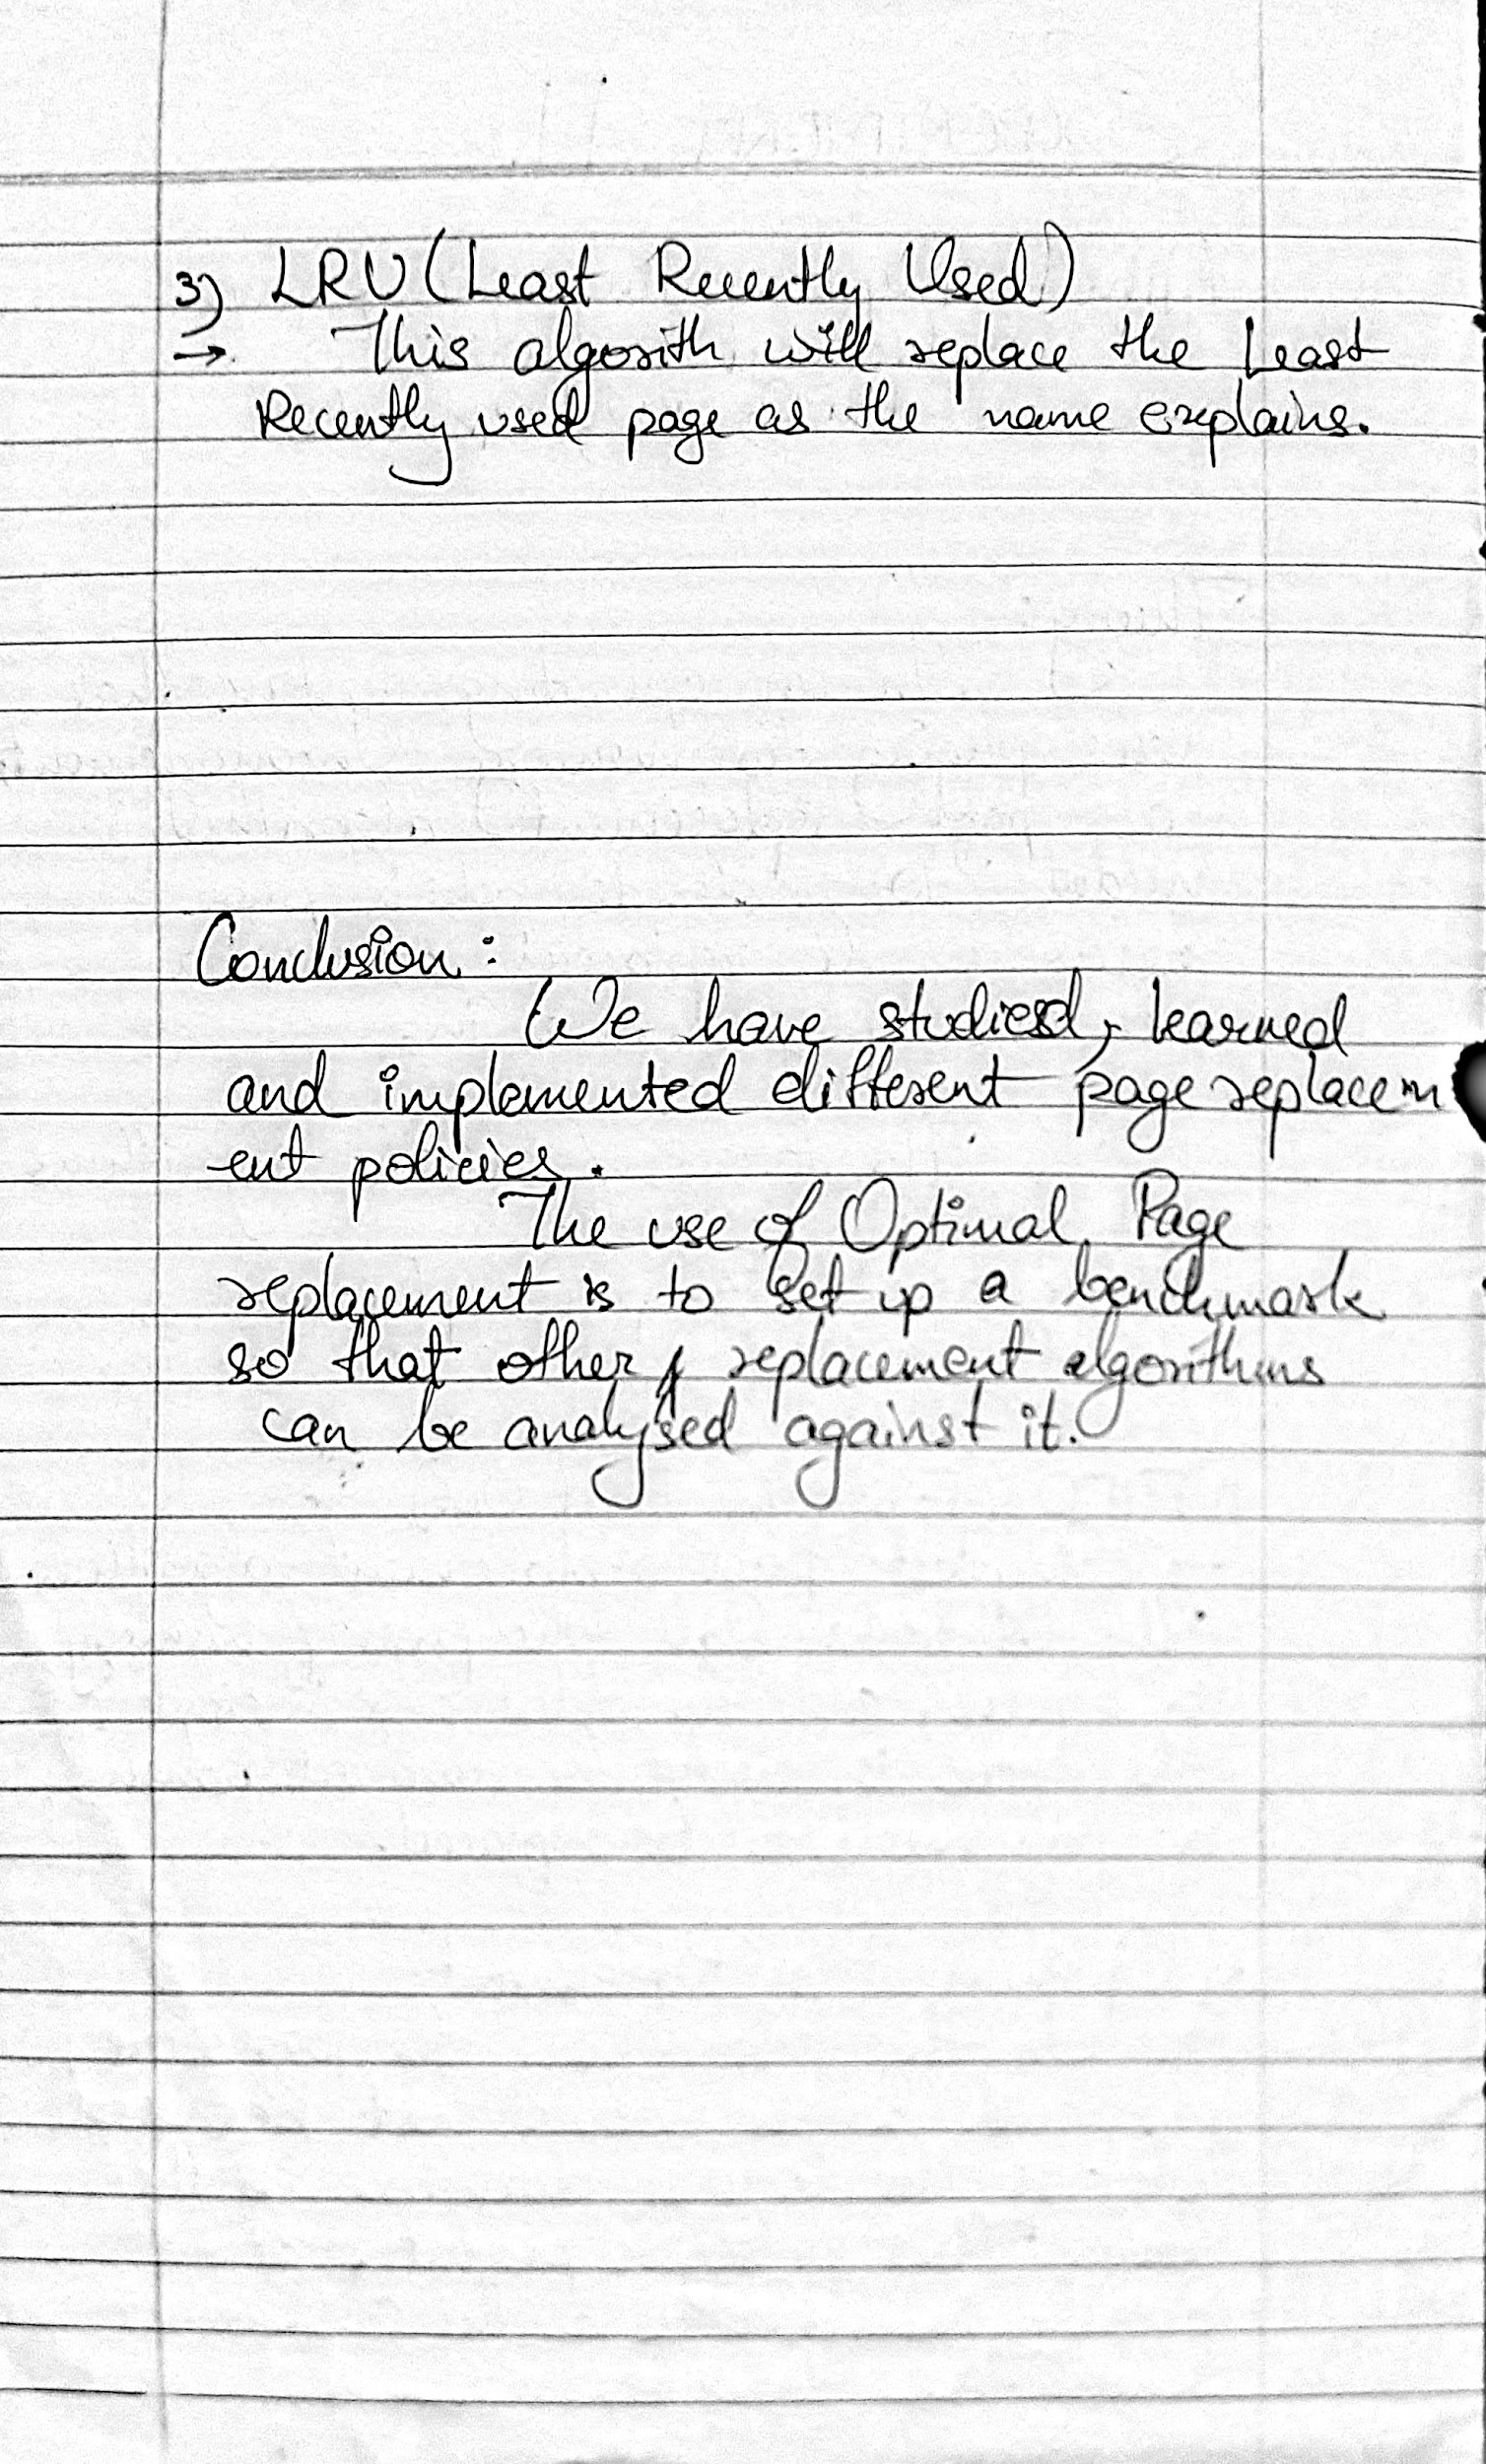 3) LRU (Least Recently Used)
→ This algorith will replace the Least
Recently used page as the name explains.
Conclusion:
We have studied, learned
and implemented different page replacem
ent policies.
The use of Optimal Page
replacement is to set up a benchmark
so that other replacement algorithms
can be analysed against it.